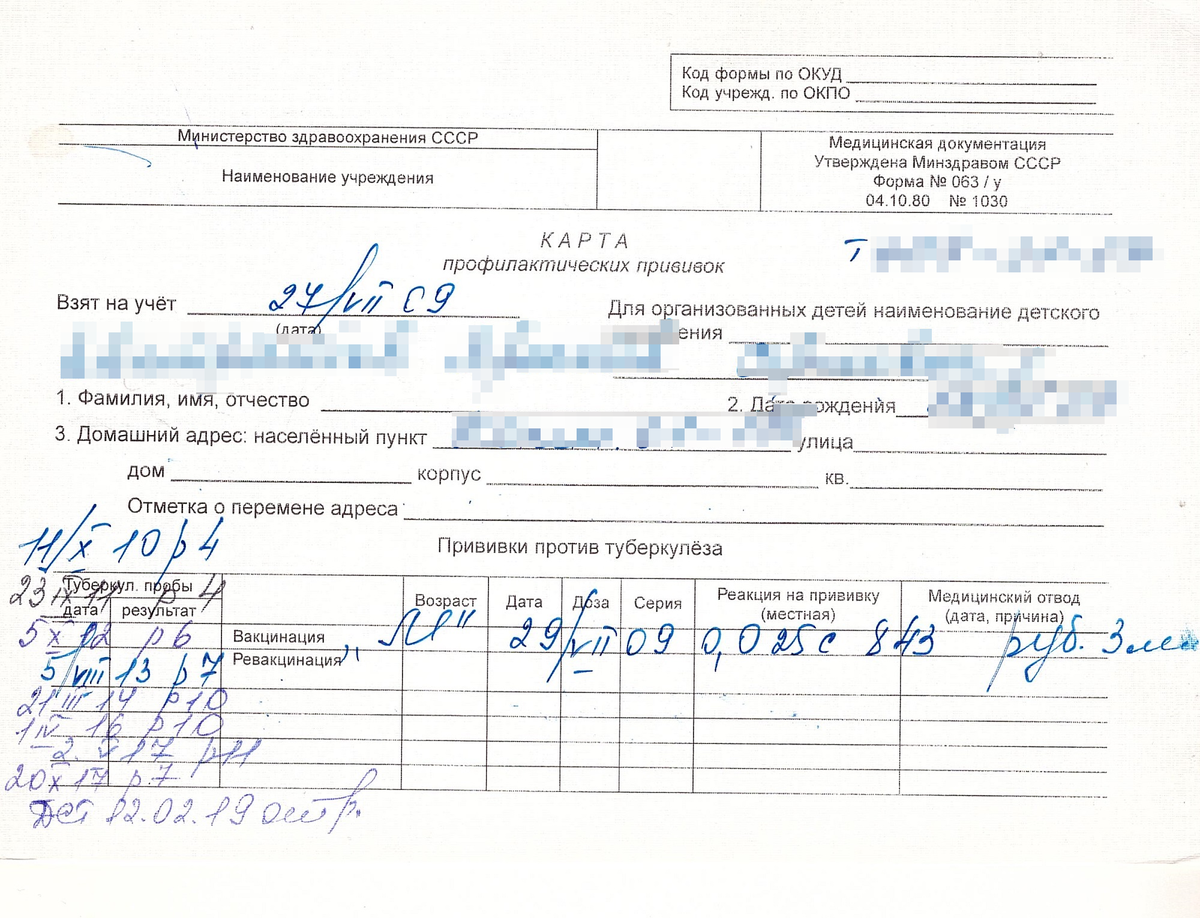 Код формы по ОКУД
Код учрежд. по ОКПО
Министерство здравоохранения СССР
Наименование учреждения
Медицинская документация
Утверждена Минздравом СССР
Форма № 063 / у
04.10.80 № 1030
КАРТА
профилактических прививок
Взят на учёт 27/VII 09
(дата)
Для организованных детей наименование детского
ения
1. Фамилия, имя, отчество
2. Дата рождения
3. Домашний адрес: населённый пункт
улица
дом корпус кв.
Отметка о перемене адреса
11/X 10 р 4
Прививки против туберкулёза
Туберкул. пробы
23 IX 11 р 4
дата результат
Возраст Дата Доза Серия Реакция на прививку (местная) Медицинский отвод (дата, причина)
5 X 12 р 6
Вакцинация "М" 29/VII 09 0,025 с 843 руб. 3 мм
5/VIII 13 р 7
Ревакцинация
21 III 14 р 10
1 IV 16 р 10
2 V 17 р 11
20 X 17 р 7
ДСТ 12.02.19 отр.